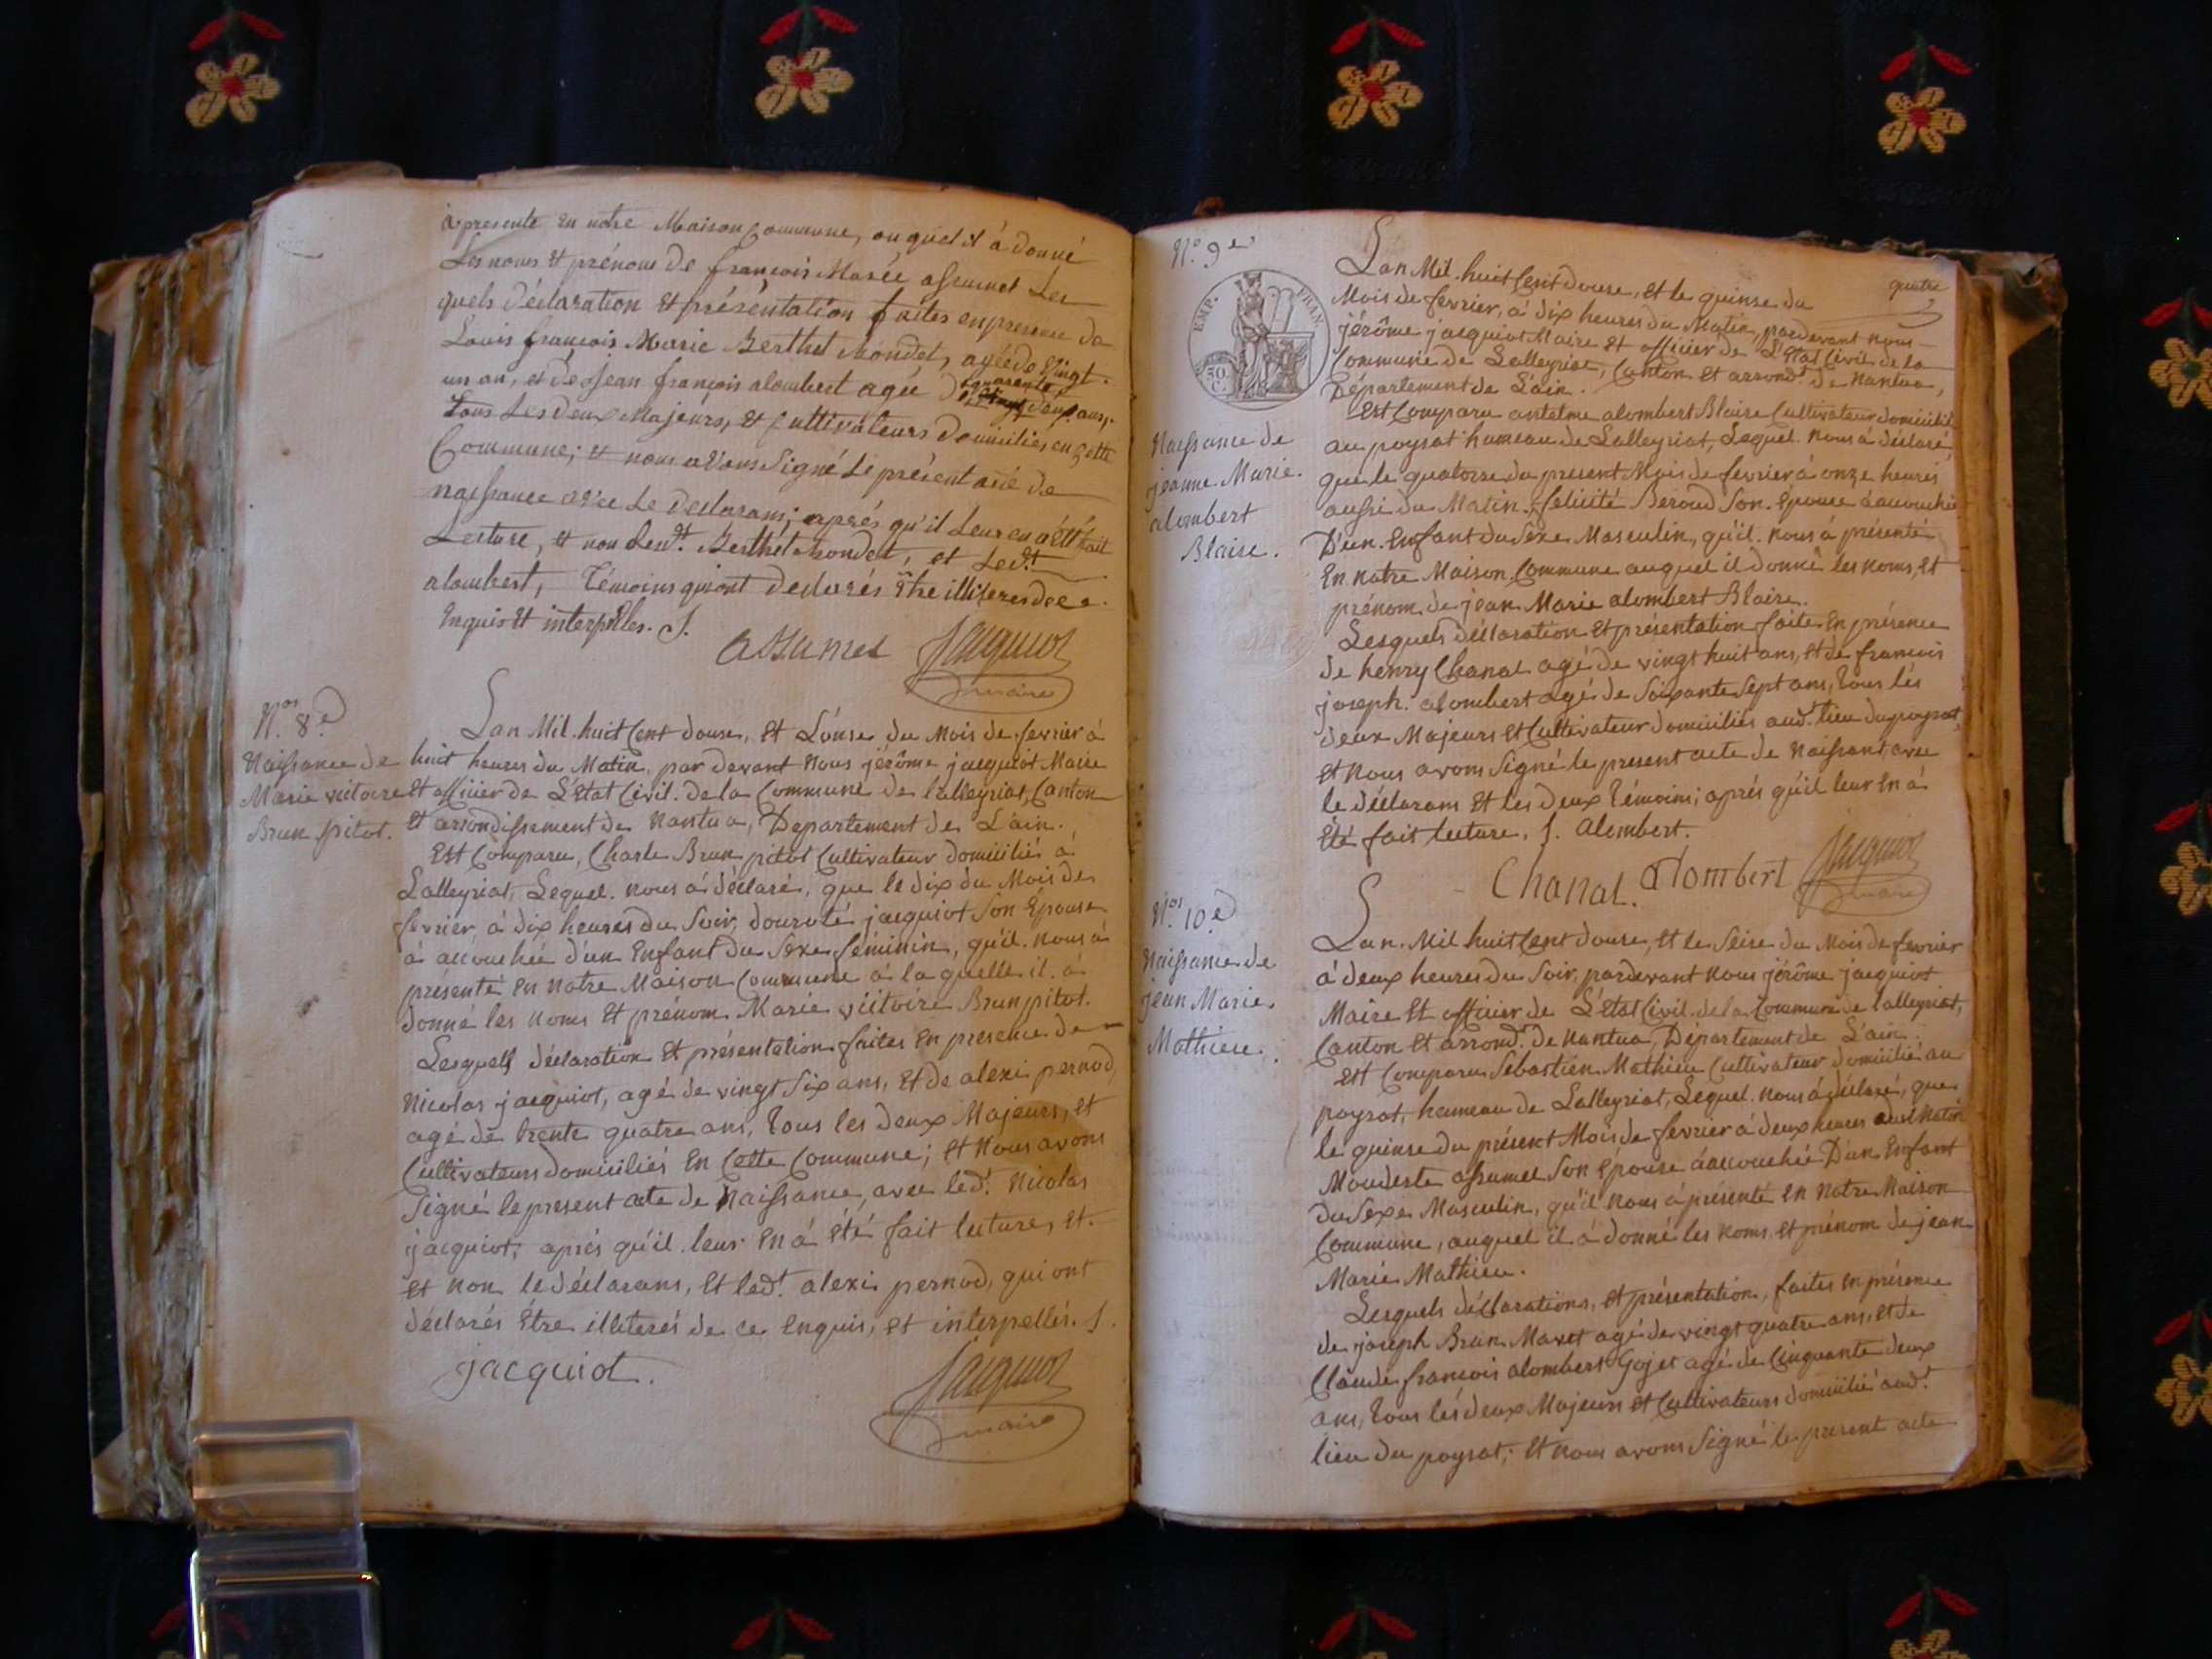 à presenté en notre Maison Commune, auquel il á donné
Les noms et prénom de françois Marie assumel Les
quels déclaration et présentation faites en presence de
Louis françois Marie Berthet Mondet, agé de Vingt
un an, et de Jean françois alombert agé de quarente deux ans,
tous Les deux Majeurs, et Cultivateurs domiciliés en Cette
Commune; et nous avons Signé Le présent acte de
naissance avec Le declarans; aprés qu'il Leur en a été fait
Lecture, et non Ledt. Berthet Mondet, et Ledt.
alombert, Témoins qui ont declarés être illiterés de ce
Enquis et interpellés. J.
assumel Jacquiot
maire
Nos. 8e
Naissance de
Marie victoire
Brun pitot.
Lan Mil huit Cent douse, et L'onse du Mois de fevrier à
huit heures du Matin, par devant Nous jérôme jacquiot Maire
et officier de L'État Civil de la Commune de Lalleyriat, Canton
et arrondissement de Nantua, Departement de L'ain.
Est Comparu, Charle Brun pitot Cultivateur domiciliés à
Lalleyriat, Lequel nous á déclaré, que le dix du Mois de
fevrier, à dix heures du Soir, doroté jacquiot Son Épouse
á accouchée d'un Enfant du Sexe féminin, qu'il nous á
présenté en notre Maison Commune à laquelle il á
donné les noms et prénom Marie victoire Brun pitot.
Lesquels déclaration et présentation faites en presence de
Nicolas jacquiot, agé de vingt Six ans, et de alexi pernod,
agé de trente quatre ans, Tous les deux Majeurs, et
Cultivateurs domiciliés en Cette Commune; et Nous avons
Signé le present acte de Naissance, avec ledt. Nicolas
jacquiot, aprés qu'il leur en á été fait lecture, et
et non le déclarans, et ledt. alexi pernod, qui ont
déclarés être illiterés de ce enquis, et interpellés. J.
jacquiot. Jacquiot
maire
No. 9e
quatre
EMP. FRAN.
50 C.
Naissance de
jeanne Marie
alombert
Blaise.
Lan Mil huit Cent douse, et le quinse du
Mois de fevrier, à dix heures du Matin, pardevant nous
jérôme jacquiot Maire et officier de L'État Civil de la
Commune de Lalleyriat, Canton et arrondt. de Nantua,
Département de L'ain.
Est Comparu antelme alombert Blaise Cultivateur domicilié
au poysat hameau de Lalleyriat, Lequel nous á déclaré,
que le quatorse du present Mois de fevrier à onze heures
aussi du Matin, felicité Beroud Son Epouse á accouchée
D'un Enfant du Sexe Masculin, qu'il nous á présenté
En notre Maison Commune auquel il donné les noms, et
prénom de jean Marie alombert Blaise.
Lesquels déclaration et présentation faite en présence
de henry Chanal agé de vingt huit ans, et de francois
joseph alombert agé de Soixante Sept ans, Tous les
deux Majeurs et Cultivateur domiciliés audt. lieu du poysat,
et nous avons Signé le present acte de Naissant, avec
le déclarans et les deux Témoins; aprés qu'il leur en á
été fait lecture. J. Alombert.
Chanal. alombert Jacquiot
maire
Nos. 10e
Naissance de
jean Marie
Mathieu.
Lan Mil huit Cent douse, et le Seise du Mois de fevrier
à deux heures du Soir, pardevant nous jérôme jacquiot
Maire et officier de L'état Civil de la Commune de Lalleyriat,
Canton et arrondt. de Nantua, Département de L'ain.
Est Comparu Sébastien Mathieu Cultivateur domicilié au
poysat, hameau de Lalleyriat, Lequel nous á déclaré, que
le quinse du présent Mois de fevrier à deux heures du Matin
Moudeste assumel Son épouse á accouchée D'un Enfant
du Sexe Masculin, qu'il nous á présenté en notre Maison
Commune, auquel il á donné les noms et prénom de jean
Marie Mathieu.
Lesquels déclarations, et présentation, faites en présence
de joseph Brun Maret agé de vingt quatre ans, et de
Claude françois alombert Gojet agé de Cinquante deux
ans, Tous les deux Majeurs et Cultivateurs domicilié audt.
lieu du poysat; et nous avons Signé le present acte